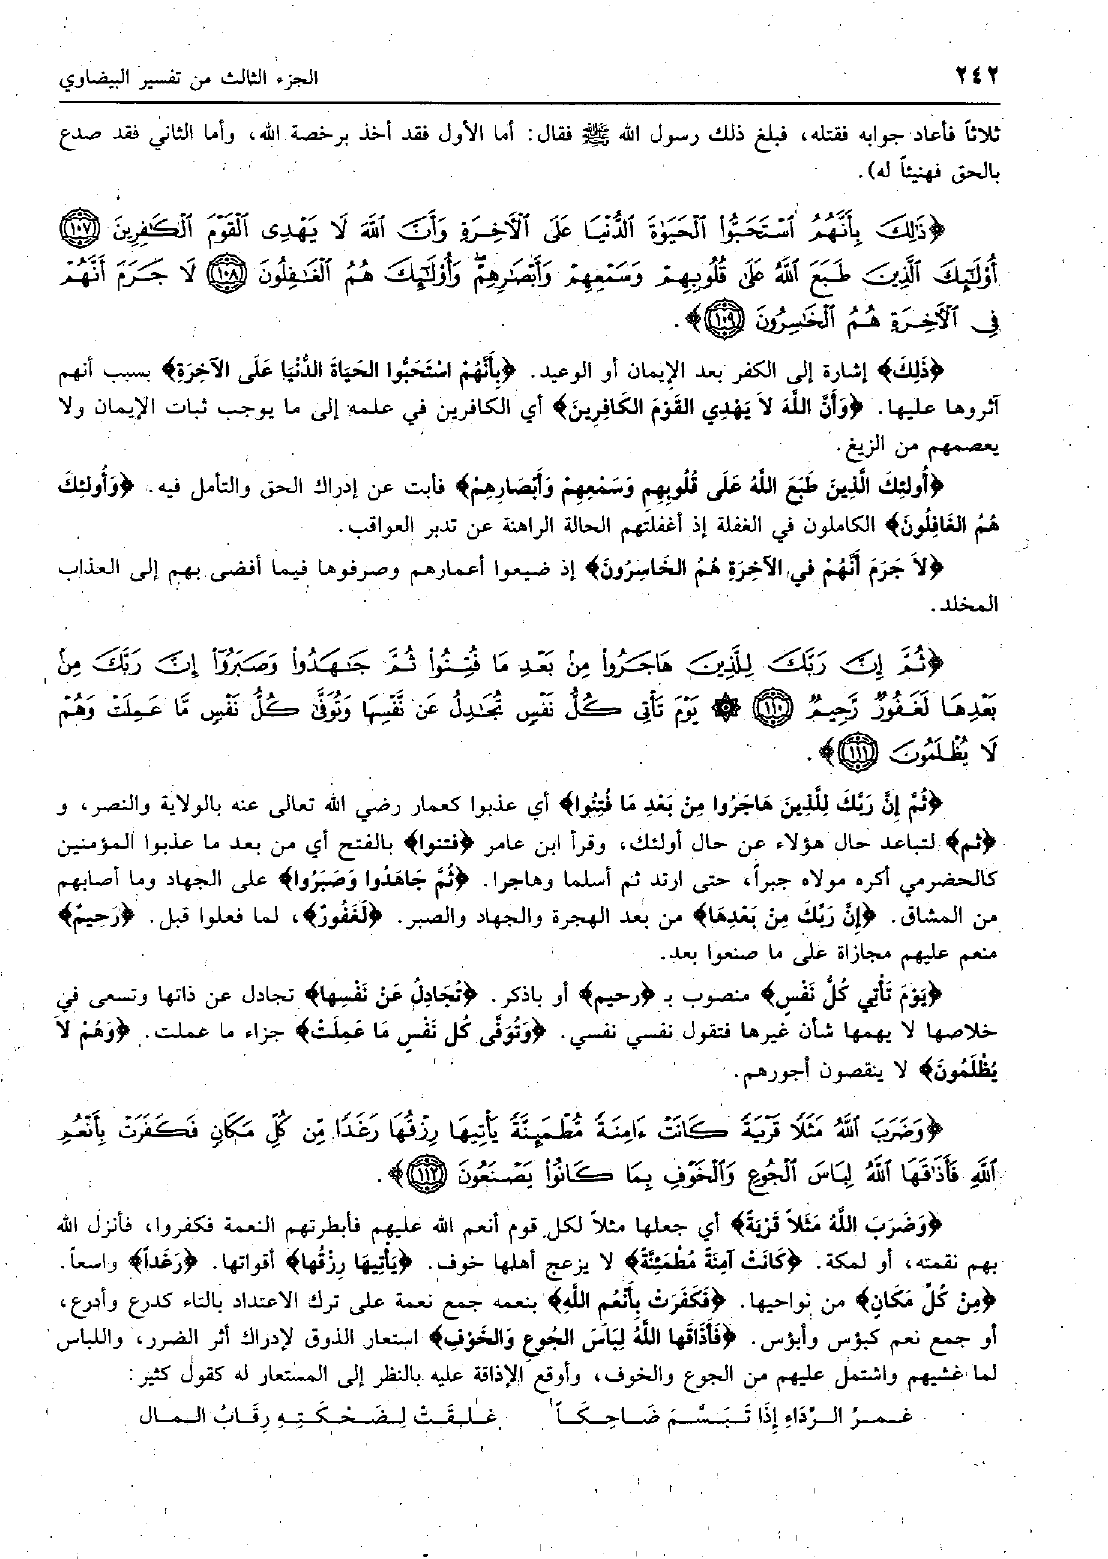 ٢٤٢ الجزء الثالث من تفسير البيضاوي
ثلاثاً فأعاد جوابه فقتله، فبلغ ذلك رسول الله ﷺ فقال: أما الأول فقد أخذ برخصة الله، وأما الثاني فقد صدع
بالحق فهنيئاً له).
﴿ذَٰلِكَ بِأَنَّهُمُ ٱسْتَحَبُّوا۟ ٱلْحَيَوٰةَ ٱلدُّنْيَا عَلَى ٱلْآخِرَةِ وَأَنَّ ٱللَّهَ لَا يَهْدِى ٱلْقَوْمَ ٱلْكَٰفِرِينَ ١٠٧
أُو۟لَٰٓئِكَ ٱلَّذِينَ طَبَعَ ٱللَّهُ عَلَىٰ قُلُوبِهِمْ وَسَمْعِهِمْ وَأَبْصَٰرِهِمْ ۖ وَأُو۟لَٰٓئِكَ هُمُ ٱلْغَٰفِلُونَ ١٠٨ لَا جَرَمَ أَنَّهُمْ
فِى ٱلْآخِرَةِ هُمُ ٱلْخَٰسِرُونَ ١٠٩﴾.
﴿ذَلِكَ﴾ إشارة إلى الكفر بعد الإيمان أو الوعيد. ﴿بِأَنَّهُمْ اسْتَحَبُّوا الحَيَاةَ الدُّنْيَا عَلَى الآخِرَةِ﴾ بسبب أنهم
آثروها عليها. ﴿وَأَنَّ اللَّهَ لاَ يَهْدِي القَوْمَ الكَافِرِينَ﴾ أي الكافرين في علمه إلى ما يوجب ثبات الإيمان ولا
يعصمهم من الزيغ.
﴿أُولئِكَ الَّذِينَ طَبَعَ اللَّهُ عَلَى قُلُوبِهِم وَسَمْعِهِمْ وَأَبْصَارِهِمْ﴾ فأبت عن إدراك الحق والتأمل فيه. ﴿وَأُولئِكَ
هُمُ الغَافِلُونَ﴾ الكاملون في الغفلة إذ أغفلتهم الحالة الراهنة عن تدبر العواقب.
﴿لاَ جَرَمَ أَنَّهُمْ في الآخِرَةِ هُمُ الخَاسِرُونَ﴾ إذ ضيعوا أعمارهم وصرفوها فيما أفضى بهم إلى العذاب
المخلد.
﴿ثُمَّ إِنَّ رَبَّكَ لِلَّذِينَ هَاجَرُوا۟ مِنۢ بَعْدِ مَا فُتِنُوا۟ ثُمَّ جَٰهَدُوا۟ وَصَبَرُوٓا۟ إِنَّ رَبَّكَ مِنۢ
بَعْدِهَا لَغَفُورٌ رَّحِيمٌ ١١٠ ۞ يَوْمَ تَأْتِى كُلُّ نَفْسٍ تُجَٰدِلُ عَن نَّفْسِهَا وَتُوَفَّىٰ كُلُّ نَفْسٍ مَّا عَمِلَتْ وَهُمْ
لَا يُظْلَمُونَ ١١١﴾.
﴿ثُمَّ إِنَّ رَبَّكَ لِلَّذِينَ هَاجَرُوا مِنْ بَعْدِ مَا فُتِنُوا﴾ أي عذبوا كعمار رضي الله تعالى عنه بالولاية والنصر، و
﴿ثم﴾ لتباعد حال هؤلاء عن حال أولئك، وقرأ ابن عامر ﴿فتنوا﴾ بالفتح أي من بعد ما عذبوا المؤمنين
كالحضرمي أكره مولاه جبراً، حتى ارتد ثم أسلما وهاجرا. ﴿ثُمَّ جَاهَدُوا وَصَبَرُوا﴾ على الجهاد وما أصابهم
من المشاق. ﴿إِنَّ رَبَّكَ مِنْ بَعْدِهَا﴾ من بعد الهجرة والجهاد والصبر. ﴿لَغَفُورٌ﴾، لما فعلوا قبل. ﴿رَحِيمٌ﴾
منعم عليهم مجازاة على ما صنعوا بعد.
﴿يَوْمَ تَأْتِي كُلُّ نَفْسٍ﴾ منصوب بـ ﴿رحيم﴾ أو باذكر. ﴿تُجَادِلُ عَنْ نَفْسِها﴾ تجادل عن ذاتها وتسعى في
خلاصها لا يهمها شأن غيرها فتقول نفسي نفسي. ﴿وَتُوَفَّى كُل نَفْسٍ مَا عَمِلَتْ﴾ جزاء ما عملت. ﴿وَهُمْ لاَ
يُظْلَمُونَ﴾ لا ينقصون أجورهم.
﴿وَضَرَبَ ٱللَّهُ مَثَلًا قَرْيَةً كَانَتْ ءَامِنَةً مُّطْمَئِنَّةً يَأْتِيهَا رِزْقُهَا رَغَدًا مِّن كُلِّ مَكَانٍ فَكَفَرَتْ بِأَنْعُمِ
ٱللَّهِ فَأَذَٰقَهَا ٱللَّهُ لِبَاسَ ٱلْجُوعِ وَٱلْخَوْفِ بِمَا كَانُوا۟ يَصْنَعُونَ ١١٢﴾.
﴿وَضَرَبَ اللَّهُ مَثَلاً قَرْيَةً﴾ أي جعلها مثلاً لكل قوم أنعم الله عليهم فأبطرتهم النعمة فكفروا، فأنزل الله
بهم نقمته، أو لمكة. ﴿كَانَتْ آمِنَةً مُطْمَئِنَّةً﴾ لا يزعج أهلها خوف. ﴿يَأْتِيهَا رِزْقُها﴾ أقواتها. ﴿رَغَداً﴾ واسعاً.
﴿مِنْ كُلِّ مَكَانٍ﴾ من نواحيها. ﴿فَكَفَرَتْ بِأَنْعُمِ اللَّهِ﴾ بنعمه جمع نعمة على ترك الاعتداد بالتاء كدرع وأدرع،
أو جمع نعم كبؤس وأبؤس. ﴿فَأَذَاقَها اللَّهُ لِبَاسَ الجُوعِ وَالخَوْفِ﴾ استعار الذوق لإدراك أثر الضرر، واللباس
لما غشيهم واشتمل عليهم من الجوع والخوف، وأوقع الإذاقة عليه بالنظر إلى المستعار له كقول كثير:
غَمرُ الرِّدَاءِ إِذَا تَبَسَّمَ ضَاحِكَاً غَلِقَتْ لِضَحْكَتِهِ رِقَابُ المَال